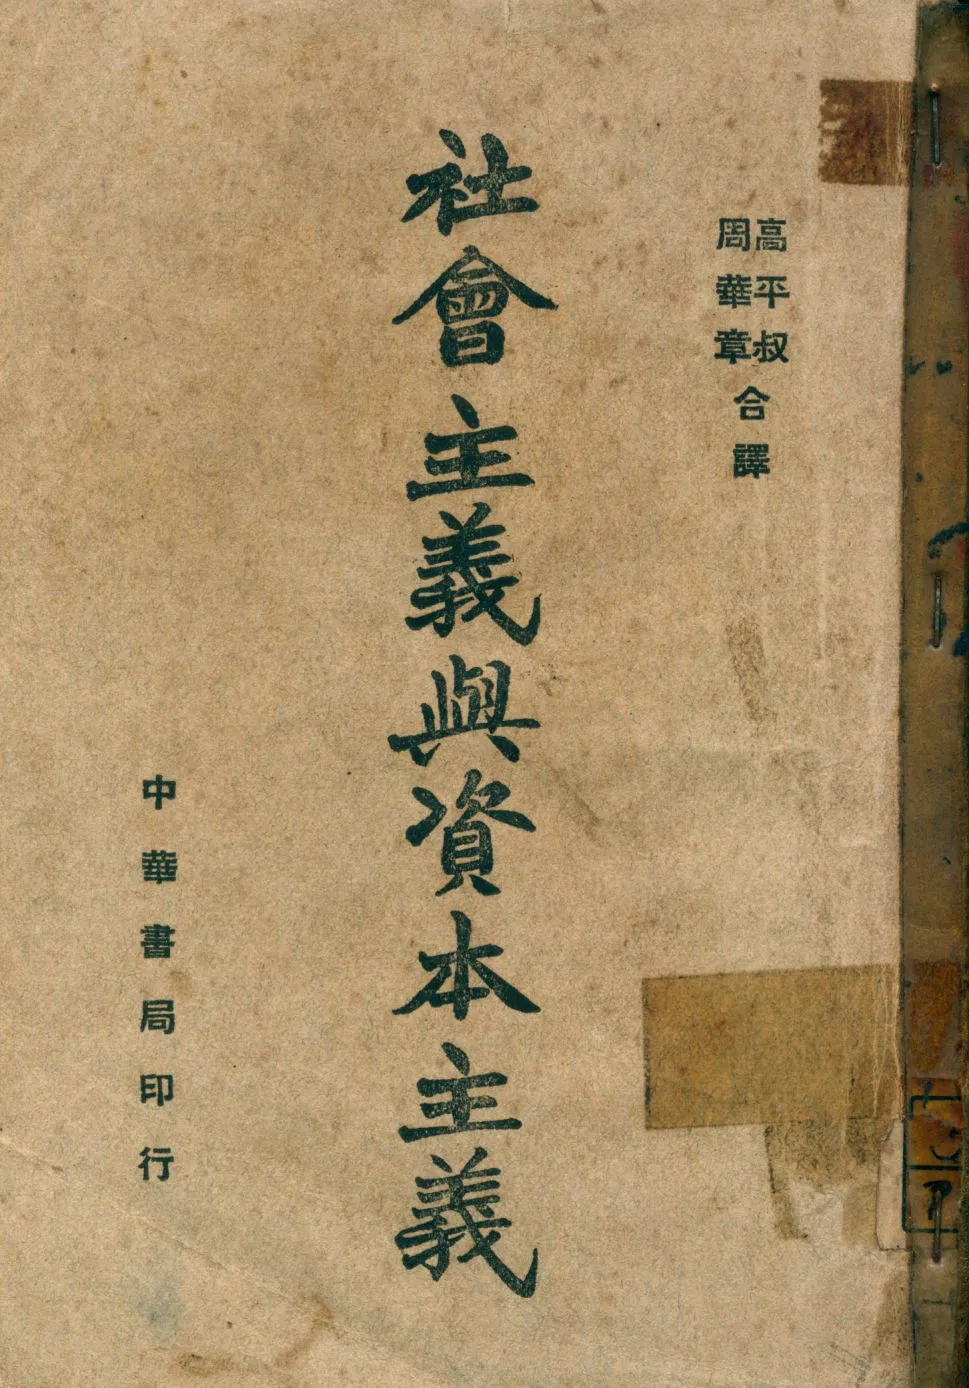 高平叔
周華章
合譯
社會主義與資本主義
中華書局印行